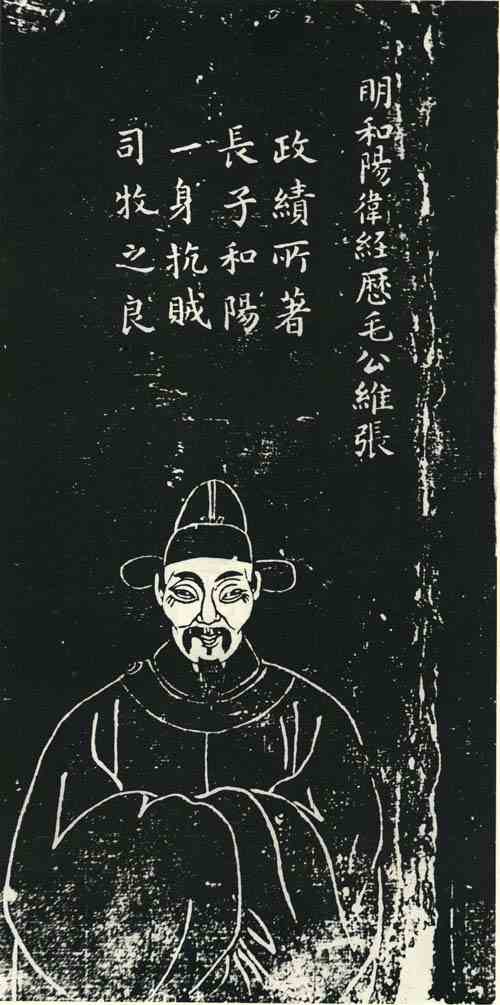 明和陽衛經歷毛公維張
政績所著
長子和陽
一身抗賊
司牧之良